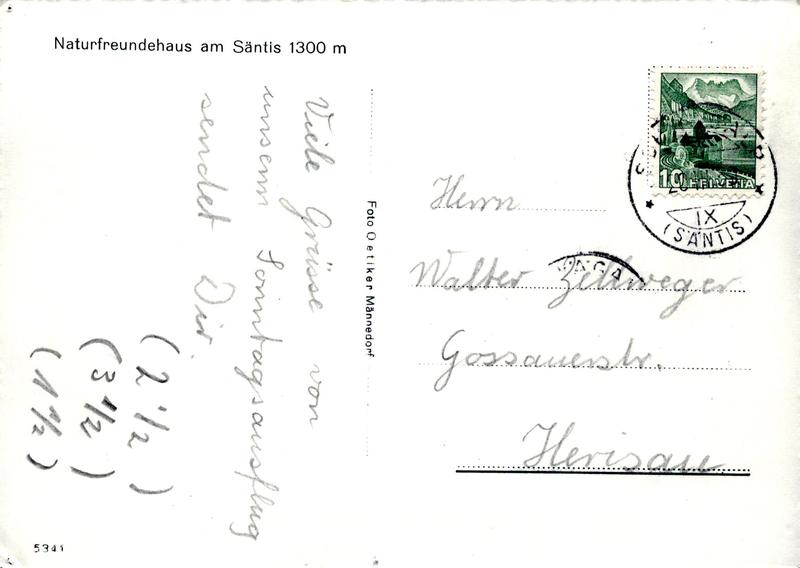 Naturfreundehaus am Säntis 1300 m
Viele Grüsse von
unserm Sonntagsausflug
sendet Dir.
(2 1/2)
(3 1/2)
(1 1/2)
Foto Oetiker Männedorf
10 HELVETIA
IX
(SÄNTIS)
Herrn
Walter Zellweger
Gossauerstr.
Herisau
5341